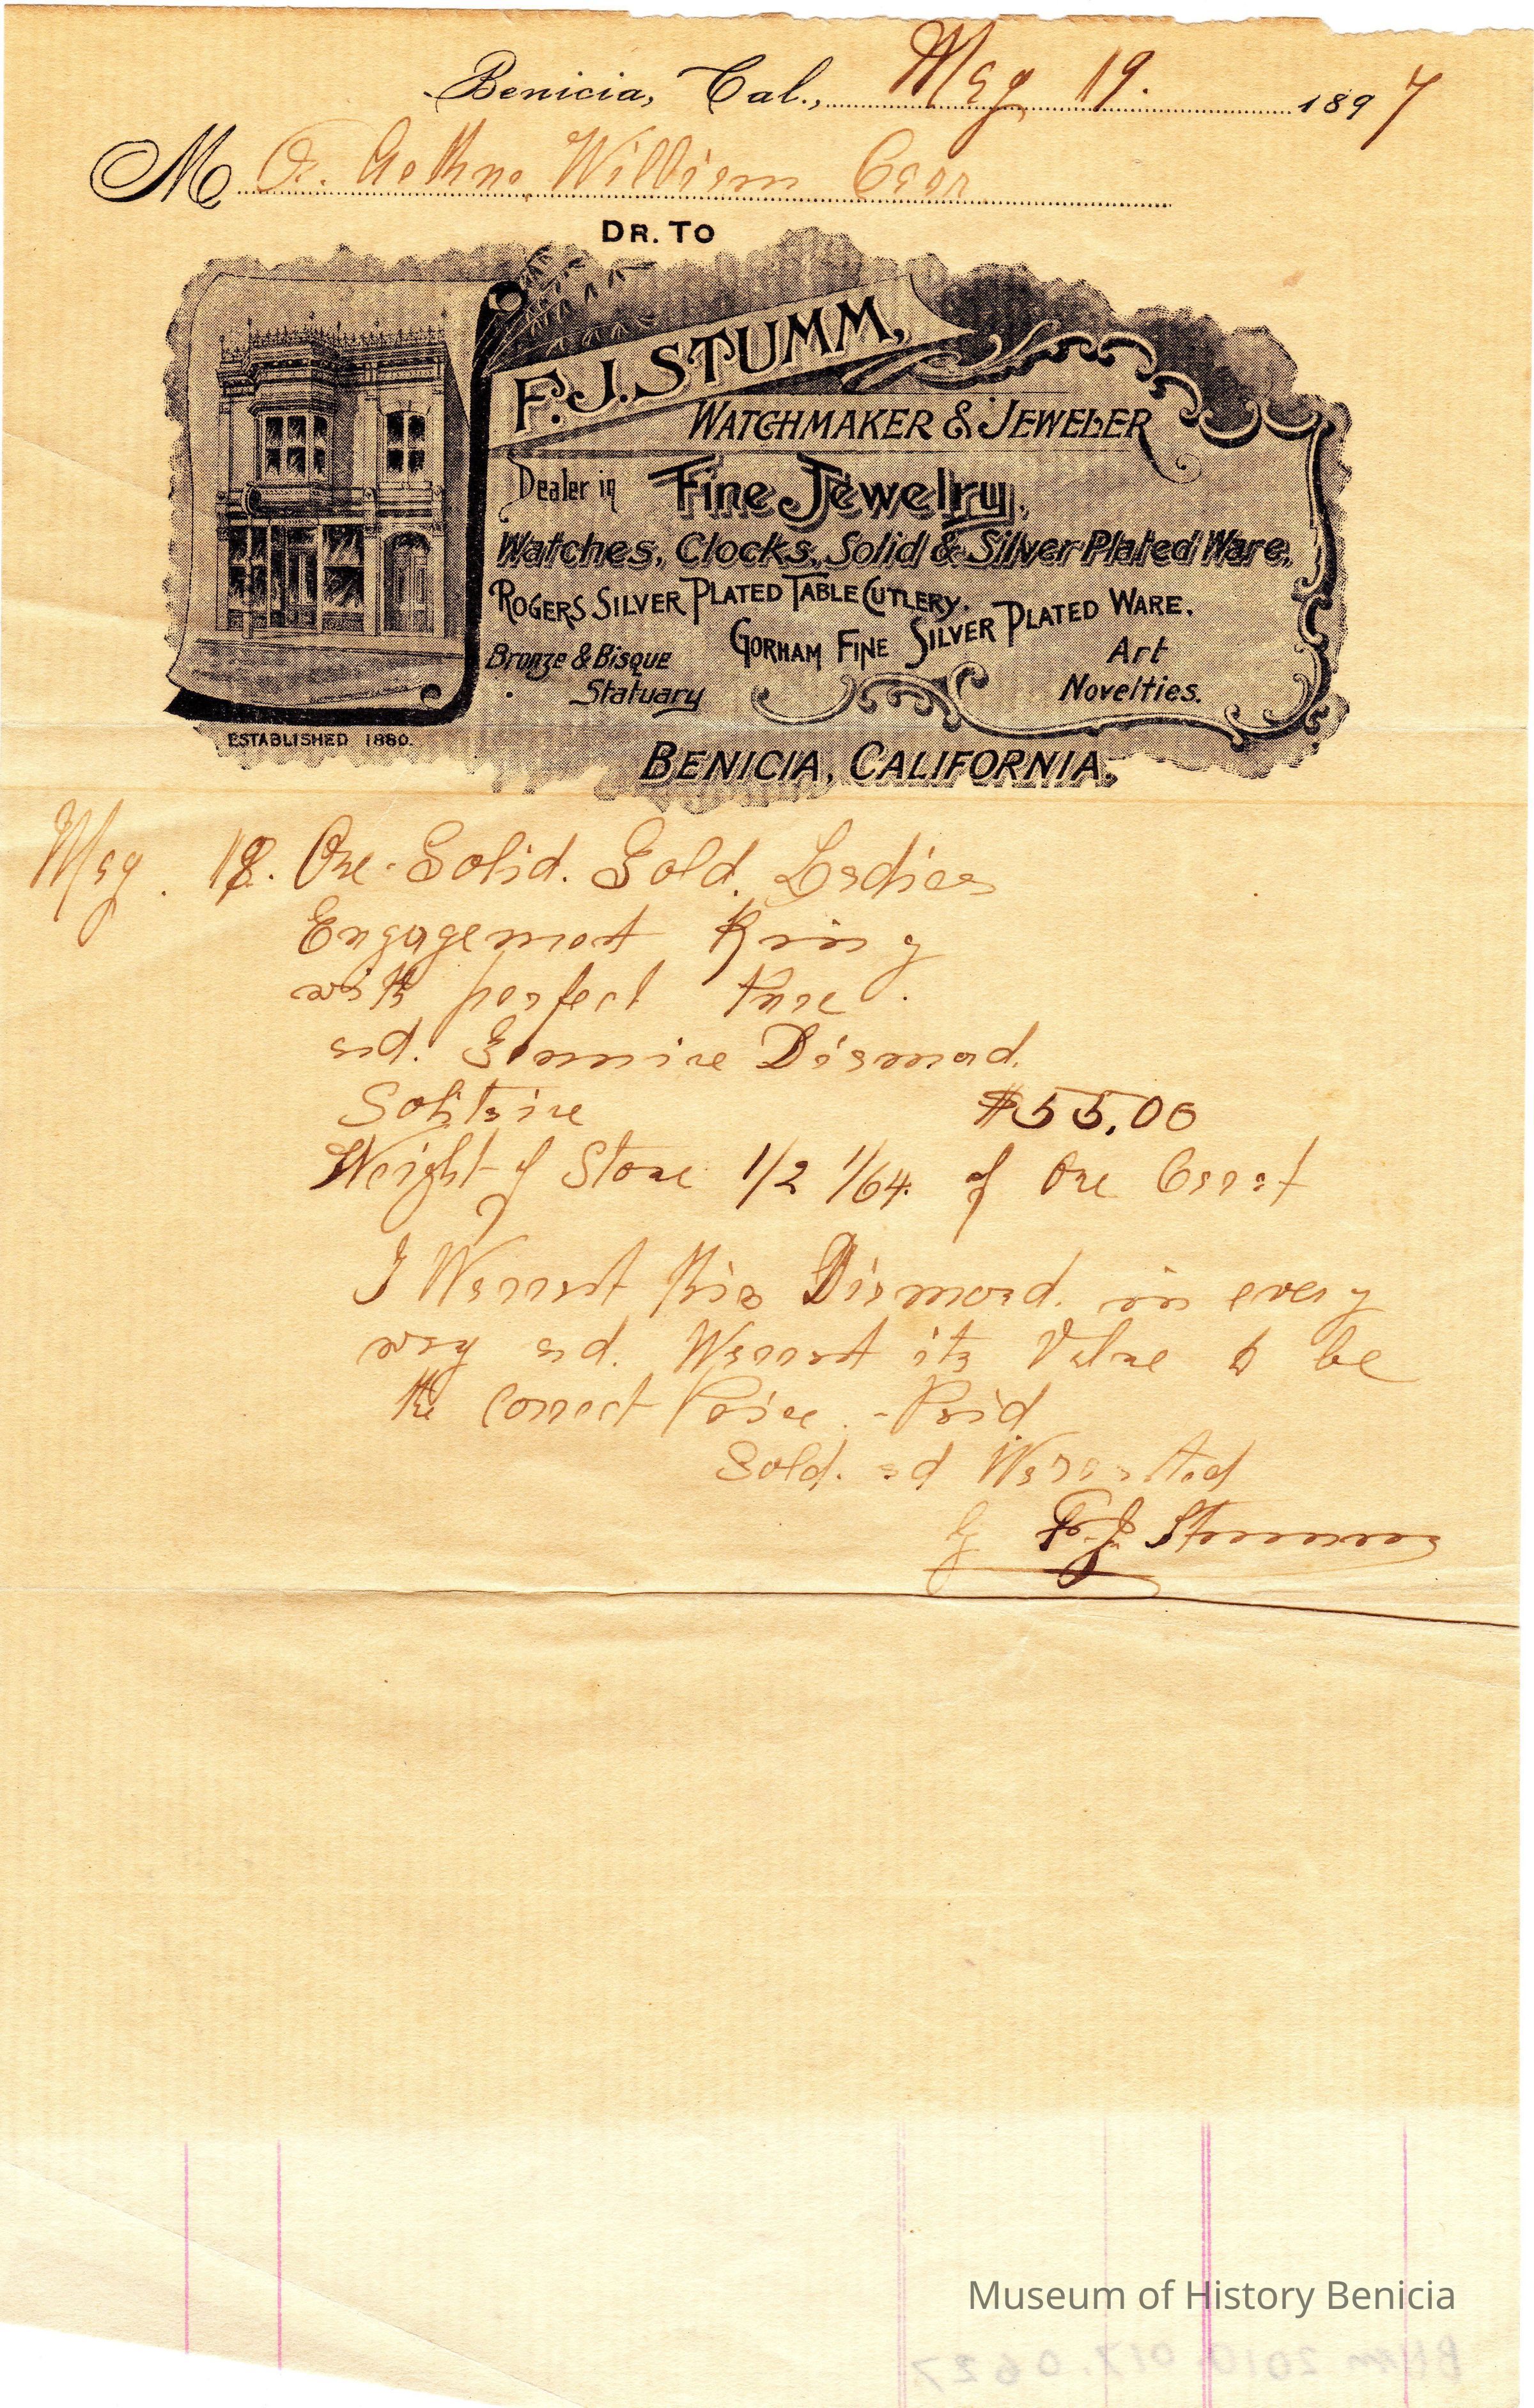 Benicia, Cal., May 19. 1897
Mr. William
DR. TO
F. J. STUMM,
WATCHMAKER & JEWELER
Dealer in Fine Jewelry,
Watches, Clocks, Solid & Silver Plated Ware,
ROGERS SILVER PLATED TABLE CUTLERY.
GORHAM FINE SILVER PLATED WARE.
Bronze & Bisque Statuary
Art Novelties.
ESTABLISHED 1880.
BENICIA, CALIFORNIA.
May. 18. One Solid. Gold. Ladies
Engagement Ring
with perfect Pure.
and. Genuine Diamond.
Solitaire $55.00
Weight of Stone 1/2 1/64. of One Carat
I Warrant this Diamond. in every
way and. Warrant its Value to be
the Correct Price. - Paid
Sold. and Warranted
by F. J. Stumm
Museum of History Benicia
BHM 2010.017.0627